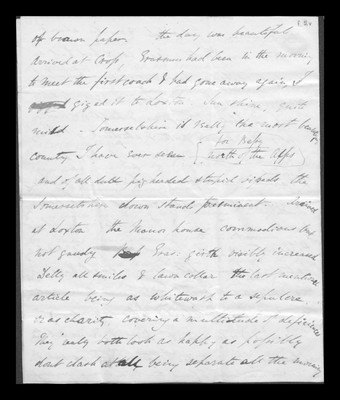 of brown paper. the day was beautiful
arrived at Coop, had been in the morning
to meet the first coach & had gone away again, I
gigged it to Loxton Sun shine, quite
mild. Somersetshire is really the most beautiful
country I have ever seen (for
north of the Alps)
and of all dull pig headed stupid the
Somersetshire clown stands prominent. Arrived
at Loxton the Manor house commodious but
not gaudy girth visibly increased
all smiles & lawn collar the last mentioned
article being as whitewash to a sepulcre
or as charity covering a multitude of deficiencies
They really both look as happy as possible
dont clash at all being separate all the morning